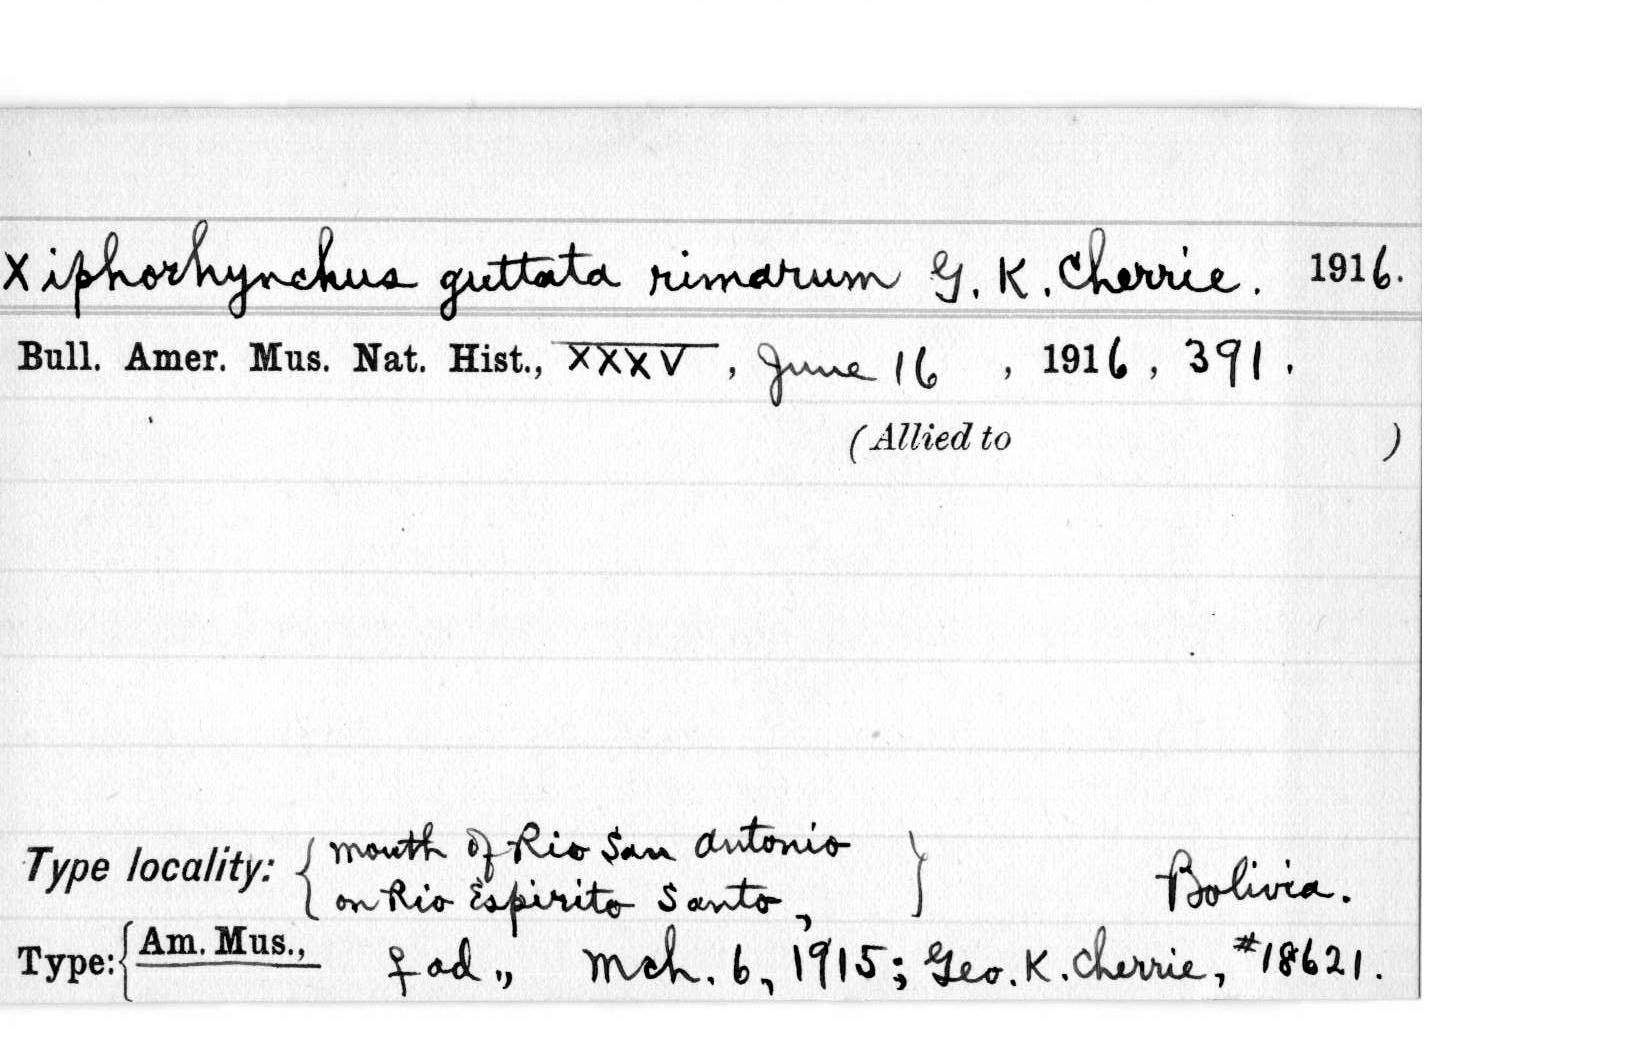 Xiphorhynchus guttata rimarum G. K. Cherrie. 1916.
Bull. Amer. Mus. Nat. Hist., XXXV, June 16, 1916, 391.
(Allied to )
Type locality: { mouth of Rio San Antonio
on Rio Espirito Santo, } Bolivia.
Type: { Am. Mus., ♀ ad., Mch. 6, 1915; Geo. K. Cherrie, #18621.